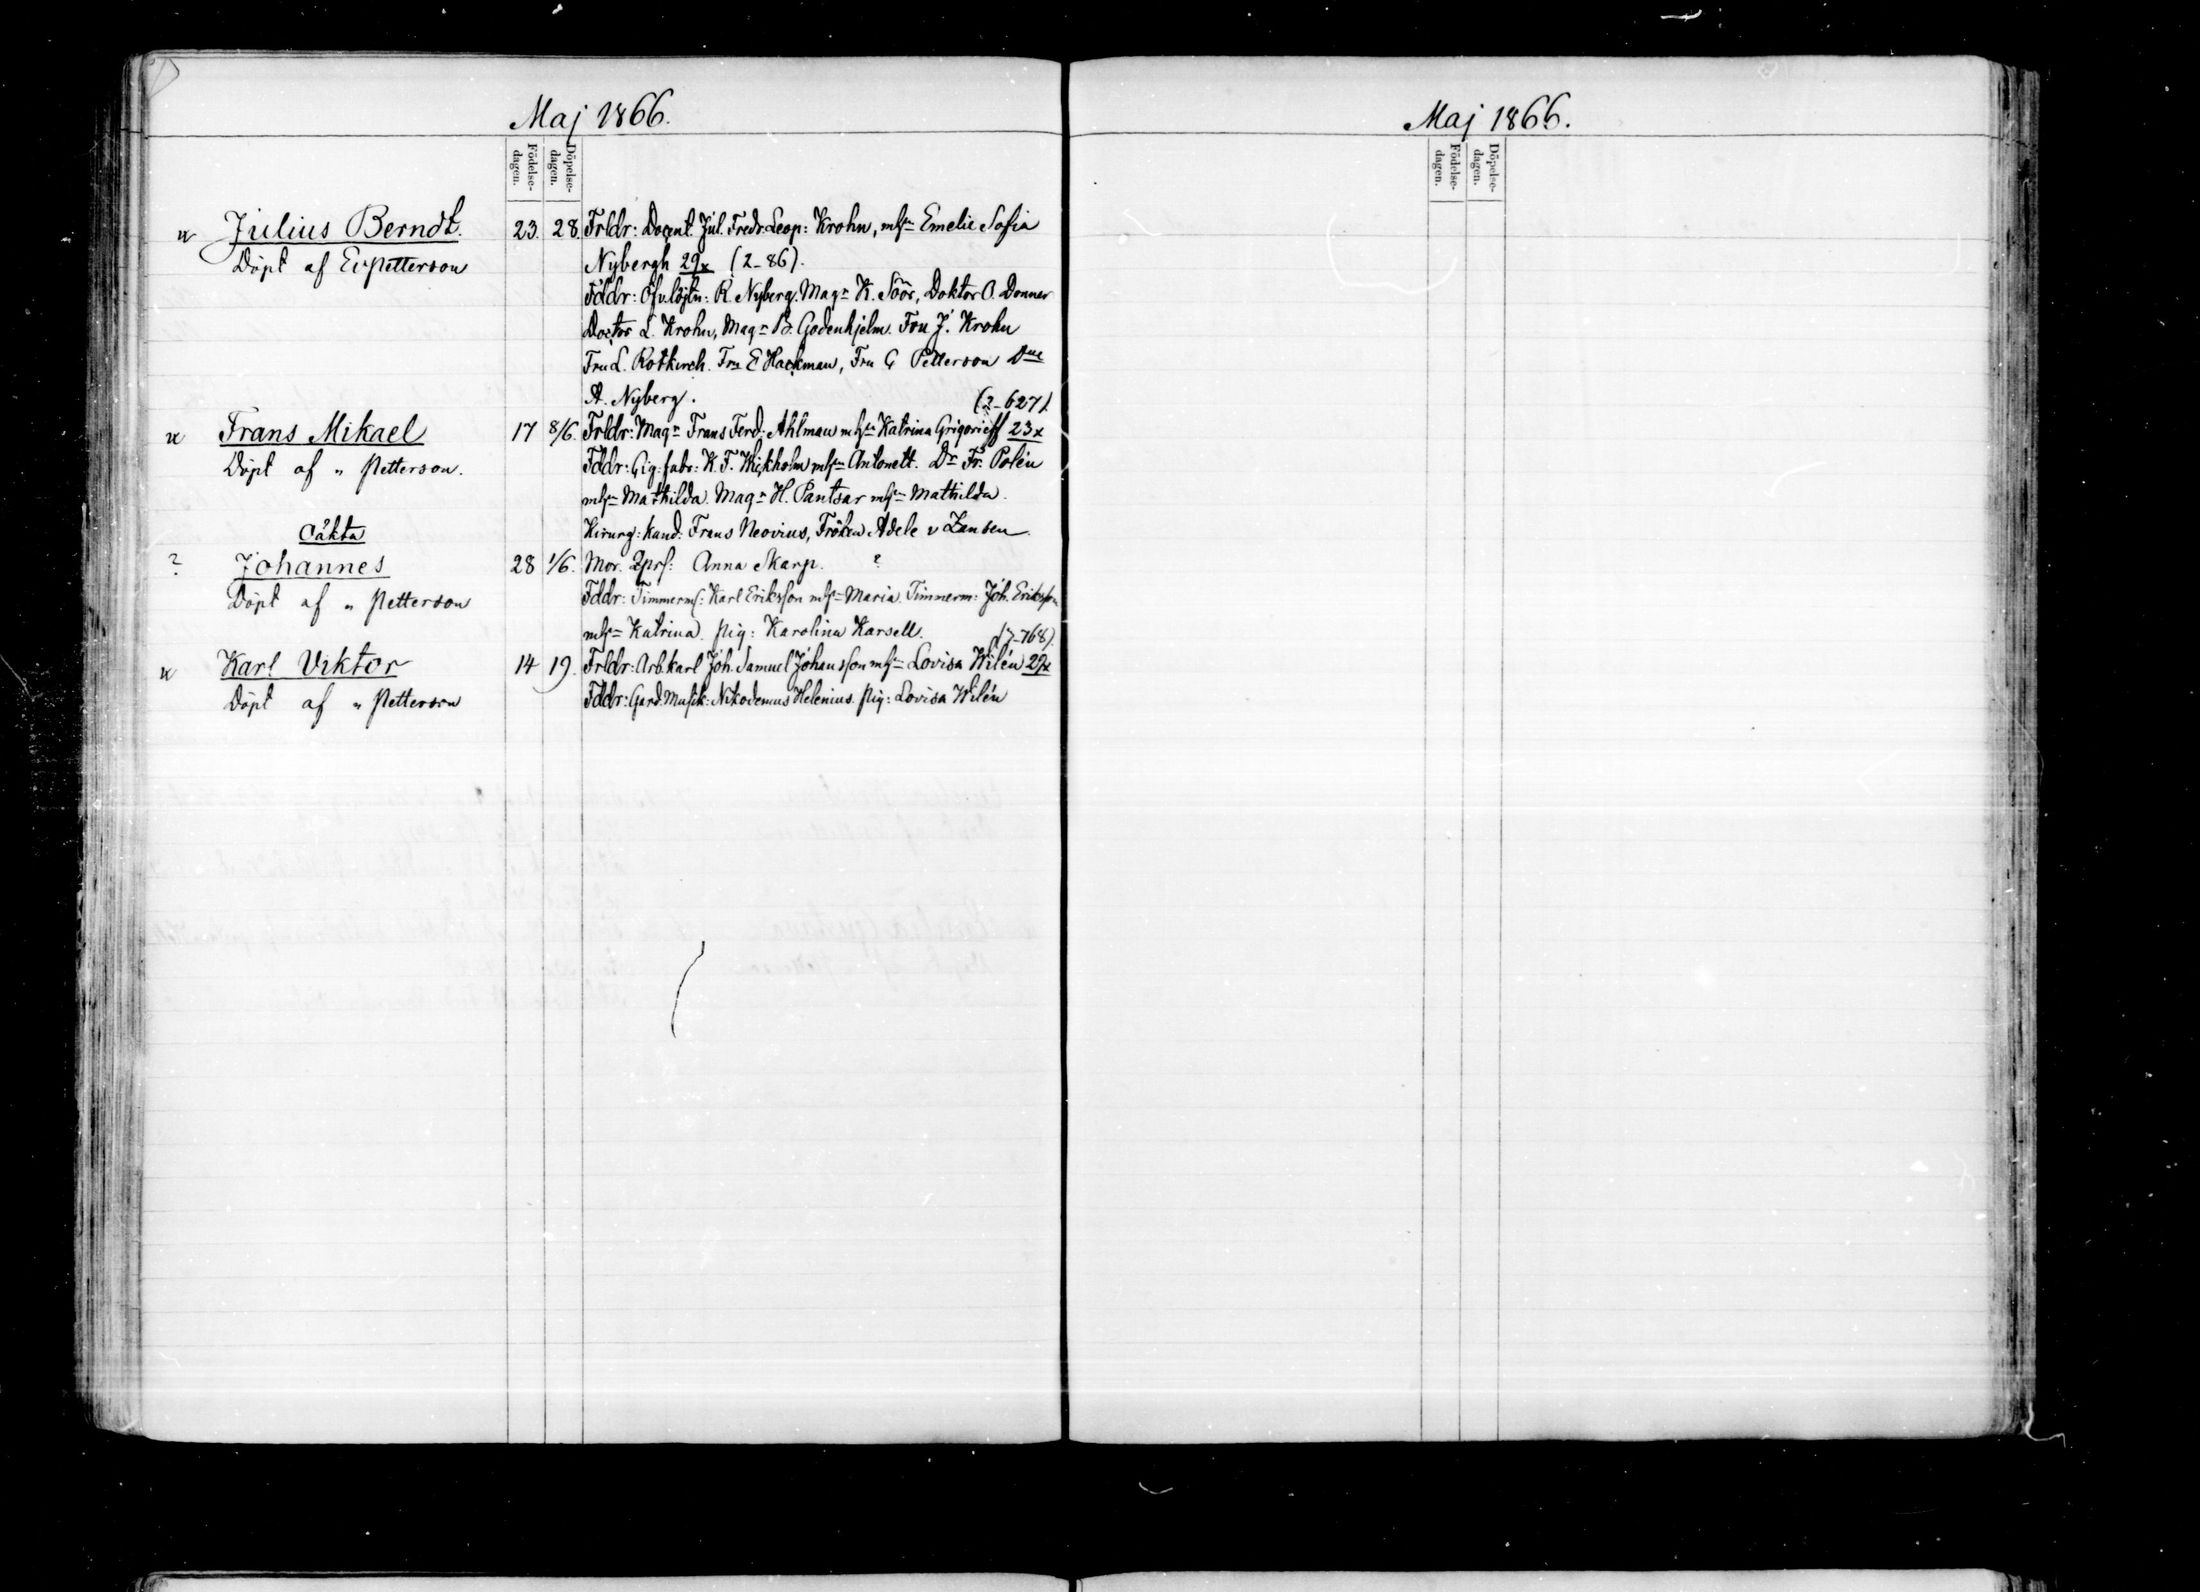 Maj 1866.
Födelse-dagen. Döpelse-dagen.
u Julius Berndt. 23. 28. Frldr: Docent Jul. Fredr. Leop: Krohn, mhn Emelie Sofia
Döpt af Ev Petterson Nybergh 29x (2-86).
Fddr: Öfv.löjtn: R. Nyberg. Magr K. Söör, Doktor O. Donner
Doctor L. Krohn, Magr B. Godenhjelm. Fru J. Krohn
Fru L. Rotkirch. Fru E Hackman, Fru G Petterson Dlle
A. Nyberg. (2-627).
u Frans Mikael 17 8/6. Frldr: Magr Frans Ferd: Ahlman mhn Katrina Grigorieff 23x
Döpt af " Petterson. Fddr: Cig: fabr: K. F. Wickholm mhn Antonett. Dr Fr. Polén
mhn Mathilda. Magr H. Pantsar mhn Mathilda.
Kirurg: kand: Frans Neovius, Fröken Adele v Zansen.
Oäkta
? Johannes 28 1/6. Mor. Anna Skarp. ?
Döpt af " Petterson Fddr: Timmerm: Karl Eriksson mhn Maria. Timmerm: Joh. Eriksson
mhn Katrina. Pig: Karolina Karsell. (7-768).
u Karl Viktor 14 19. Frldr: Arb.karl Joh. Samuel Johansson mhn Lovisa Wilén 29x
Döpt af " Petterson Fddr: Gard. Musik: Nikodemus Helenius. Pig: Lovisa Wilén
Maj 1866.
Födelse-dagen. Döpelse-dagen.